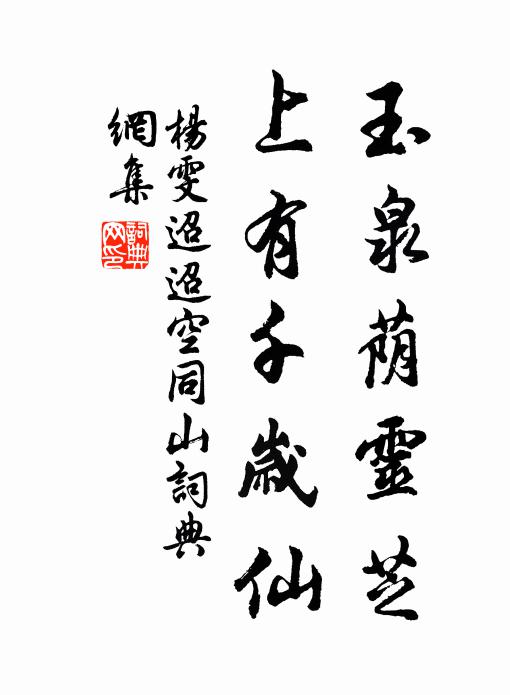 玉泉荫靈芝
上有千歲仙
楊雯迢迢空同山詞典
網集
詞典
网印